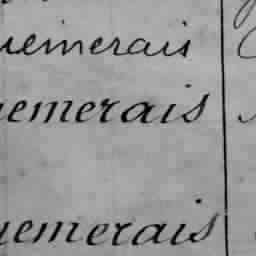 uemerais
uemerais
uemerais